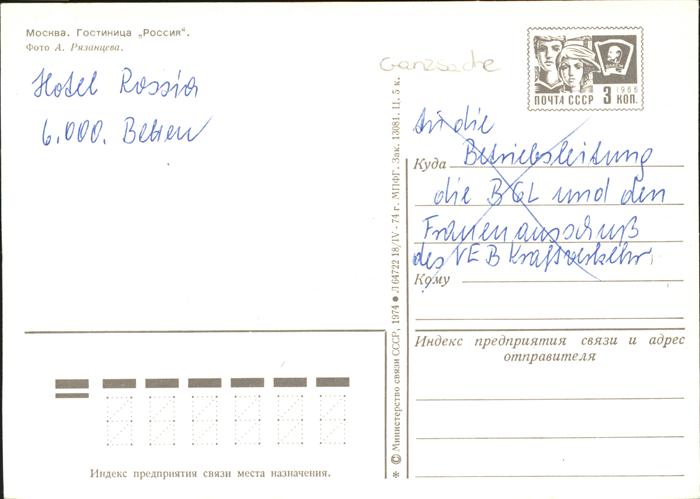 Москва. Гостиница „Россия“.
Фото А. Рязанцева.
Hotel Rossia
6.000. Betten
Ganzsache
1966
ПОЧТА СССР 3 КОП.
An die
Куда Betriebsleitung
die BGL und den
Frauenausschuß
des VEB Kraftverkehr,
Кому
Индекс предприятия связи и адрес
отправителя
* © Министерство связи СССР, 1974 ● Л 64722 18/IV - 74 г. МПФГ. Зак. 13081. Ц. 5 к.
Индекс предприятия связи места назначения.